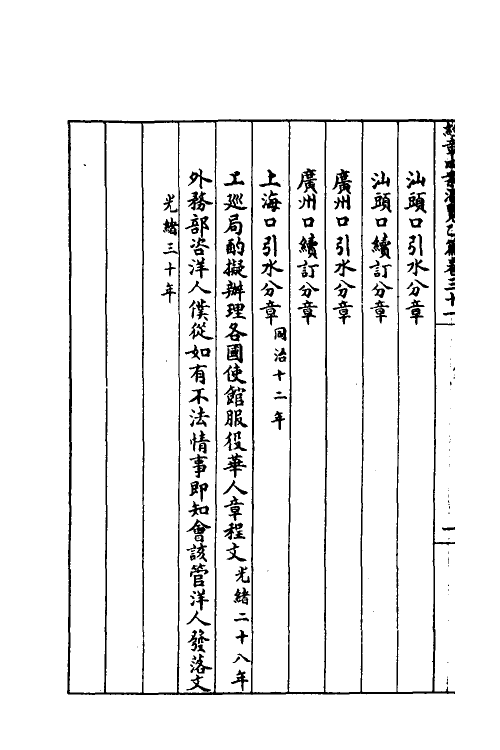 汕頭口引水分章
汕頭口續訂分章
廣州口引水分章
廣州口續訂分章
上海口引水分章同治十二年
工巡局酌擬辦理各國使館服役華人章程文光緒二十八年
外務部咨洋人僕從如有不法情事即知會該管洋人發落文
光緒三十年